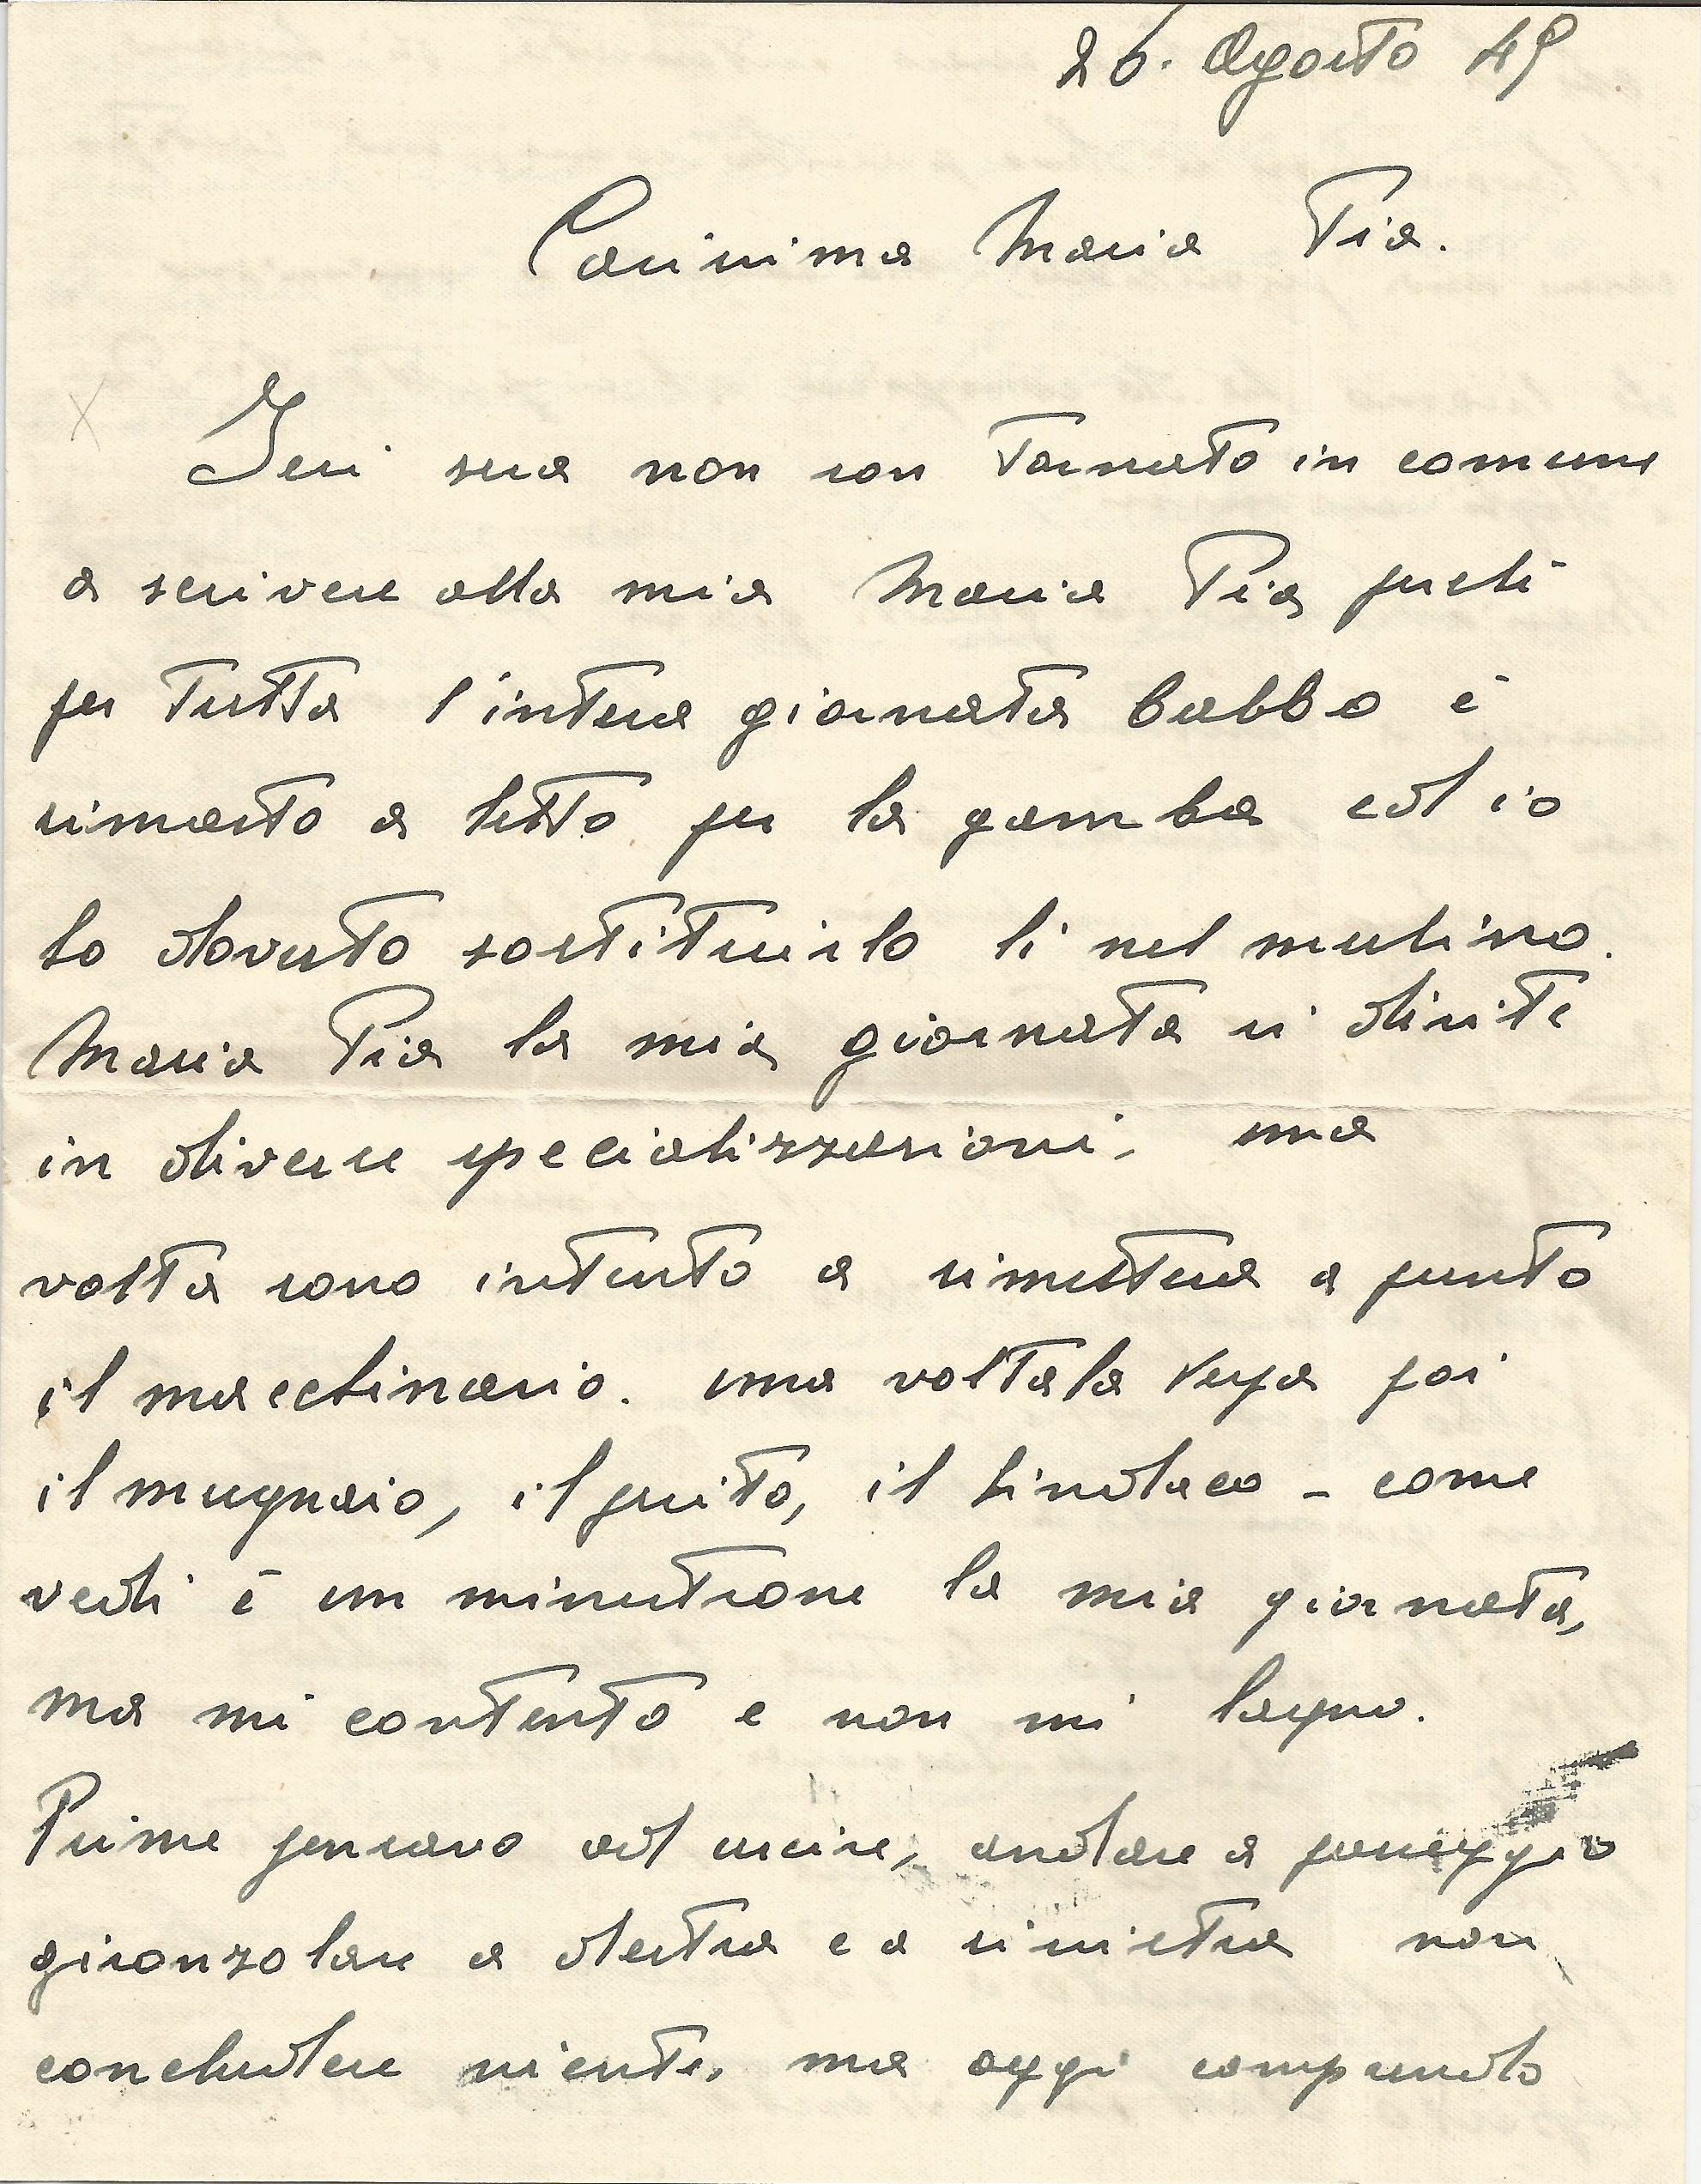 26. Agosto 49
Carissima Maria Pia.
Ieri sera non son tornato in comune
a scrivere alla mia Maria Pia perchè
per tutta l'intera giornata babbo è
rimasto a letto per la gamba ed io
ho dovuto sostituirlo lì nel mulino.
Maria Pia la mia giornata si divide
in diverse specializzazioni, una
volta sono intento a rimettere a punto
il macchinario. una volta la Vespa poi
il mugnaio, il perito, il Sindaco - come
vedi è un minestrone la mia giornata,
ma mi contento e non mi lagno.
Prima pensavo ad uscire, andare a passeggio
gironzolare a destra e a sinistra non
concludere niente, ma oggi comprendo